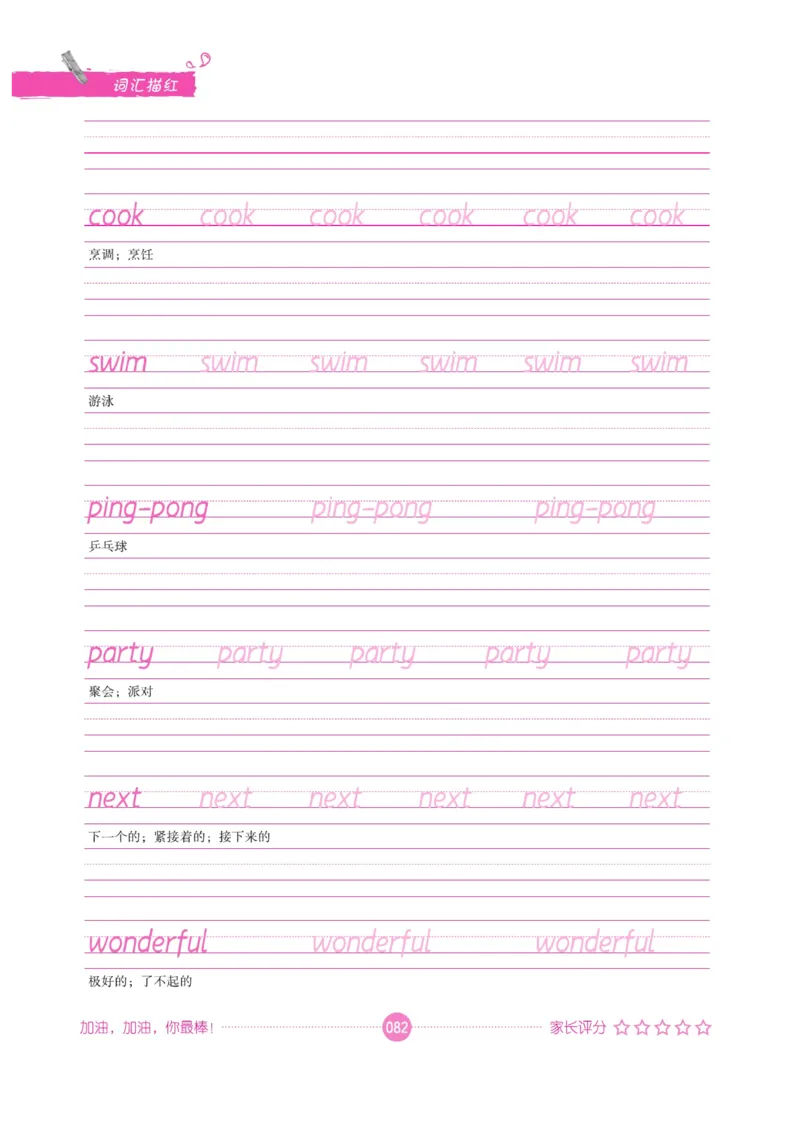 词汇描红
cook cook cook cook cook cook
烹调；烹饪
swim swim swim swim swim swim
游泳
ping-pong ping-pong ping-pong
乒乓球
party party party party party
聚会；派对
next next next next next next
下一个的；紧接着的；接下来的
wonderful wonderful wonderful
极好的；了不起的
加油，加油，你最棒！ 082 家长评分